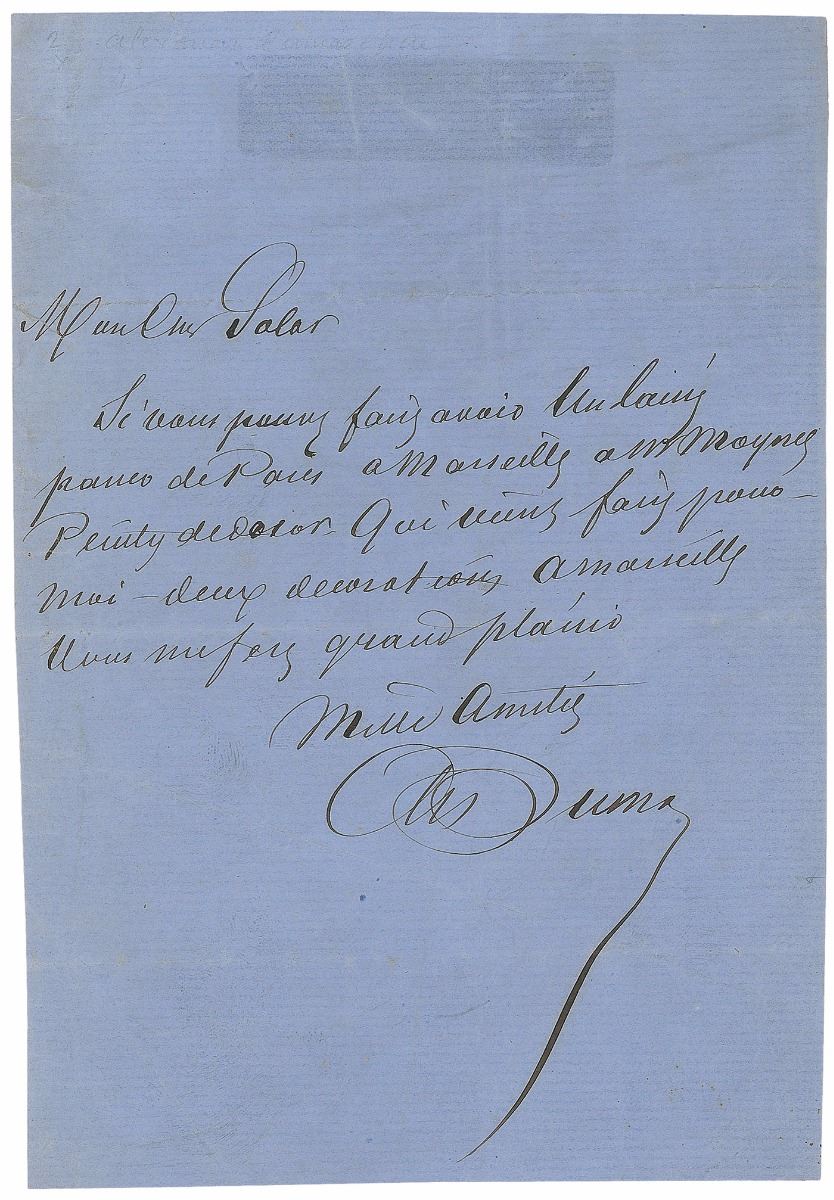 Mon cher Solar
Si vous pouvez faire avoir un laisser
passer de Paris a Marseille a Mr Moynet
Peintre decor. Qui vient faire pour
moi – deux decorations a Marseille
Vous me ferez grand plaisir
Mille Amitiés
Alex Dumas